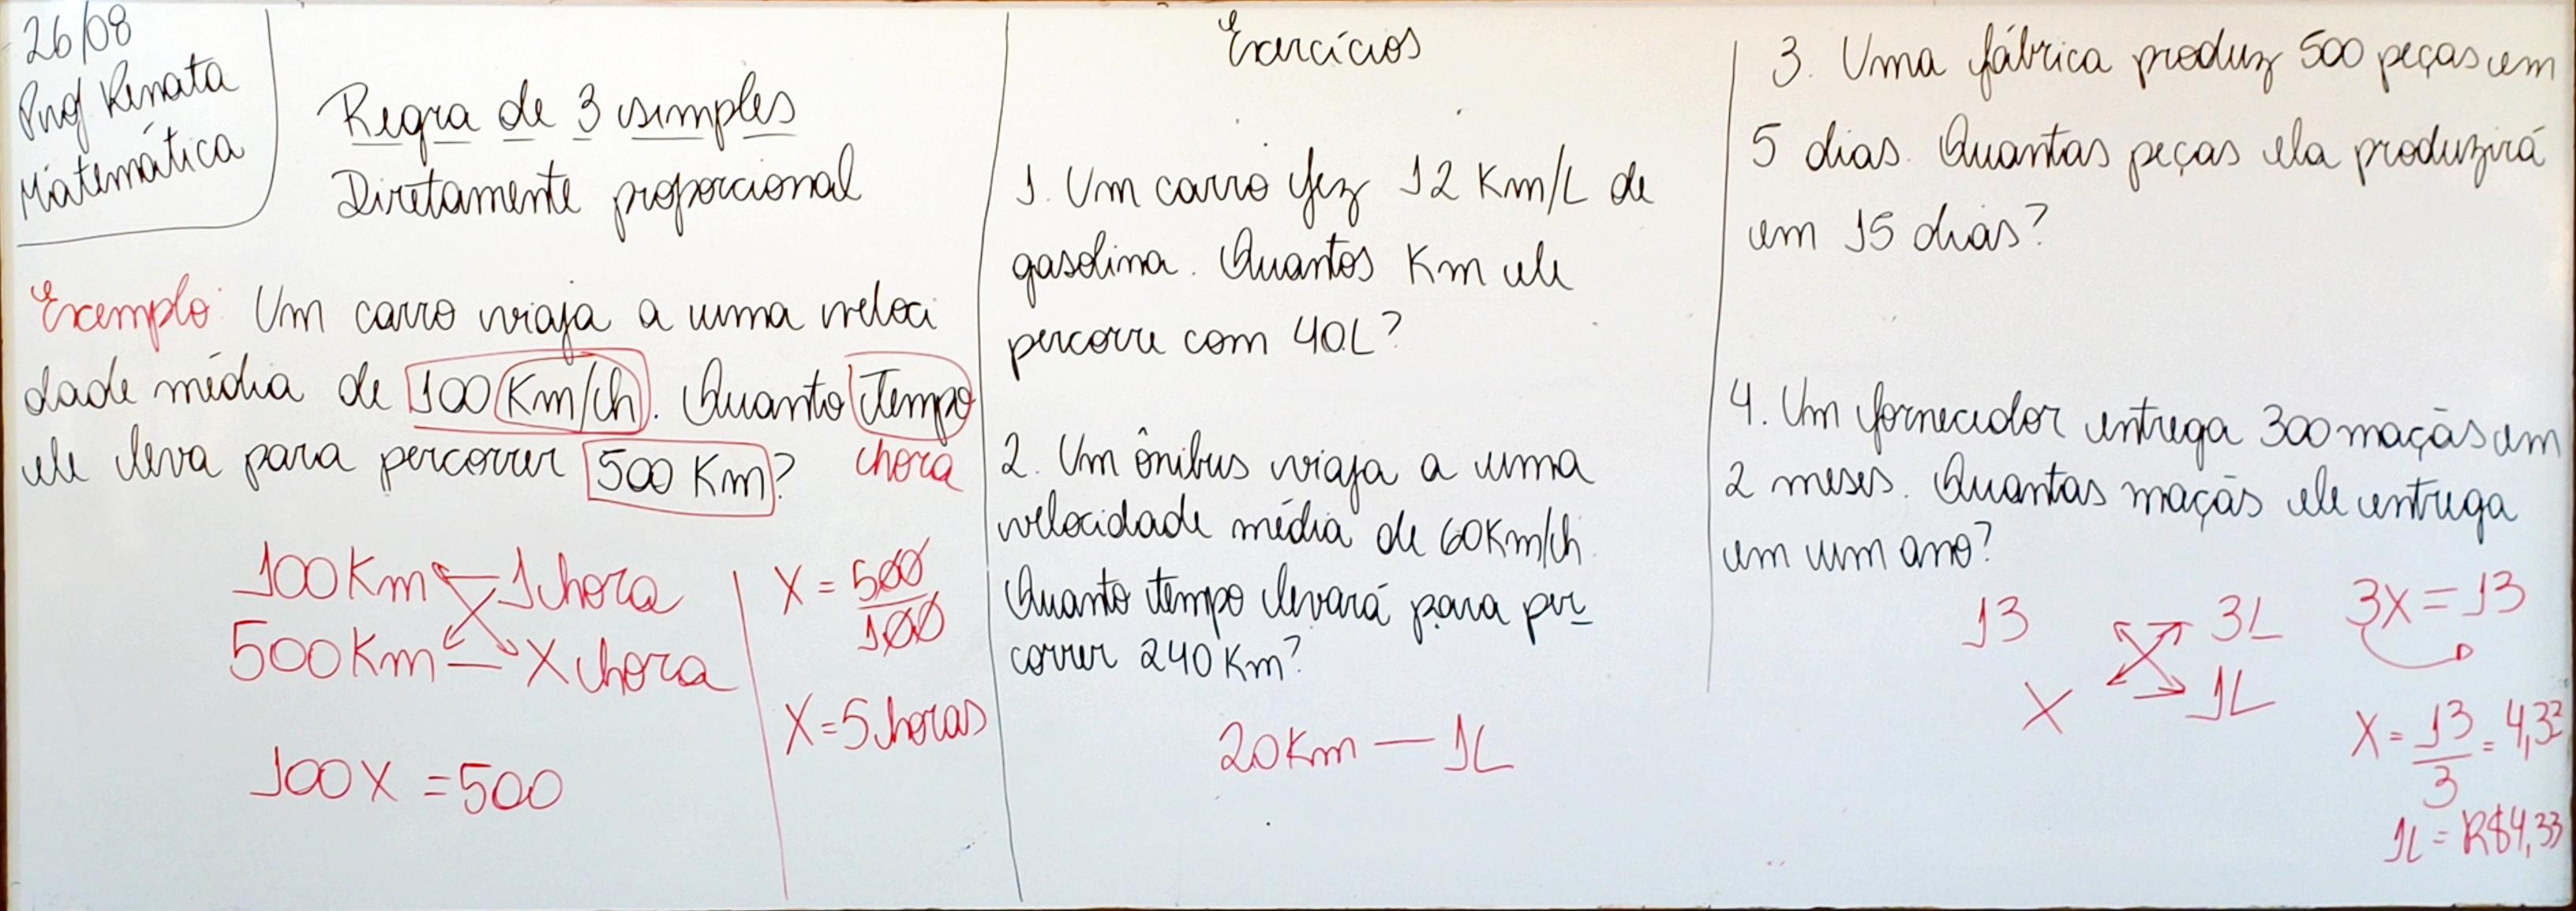 26/08
Prof Renata
Matemática
Regra de 3 simples
Diretamente proporcional
Exemplo: Um carro viaja a uma veloci
dade média de 100 Km/h. Quanto Tempo
ele leva para percorrer 500 Km? hora
100 Km — 1 hora
500 Km — X hora
100 X = 500
X = 500/100
X = 5 horas
Exercícios
1. Um carro fez 12 Km/L de
gasolina. Quantos Km ele
percorre com 40L?
2. Um ônibus viaja a uma
velocidade média de 60 Km/h.
Quanto tempo levará para per
correr 240 Km?
20 Km — 1L
3. Uma fábrica produz 500 peças em
5 dias. Quantas peças ela produzirá
em 15 dias?
4. Um fornecedor entrega 300 maçãs em
2 meses. Quantas maçãs ele entrega
em um ano?
13 3L
X 1L
3X = 13
X = 13/3 = 4,33
1L = R$4,33